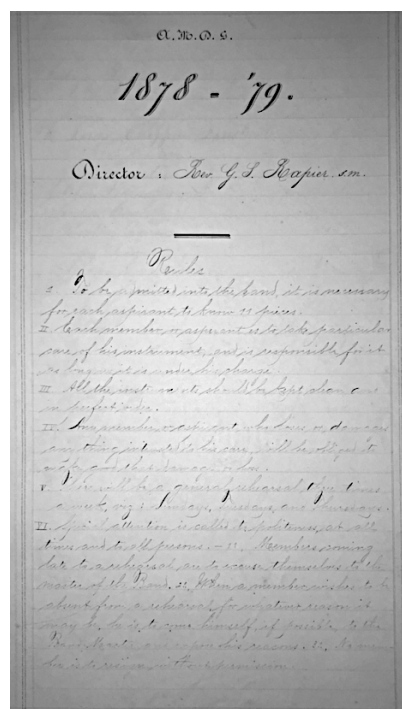 A. M. D. G.
1878 - '79.
Director : Rev. G. S. Rapier. s.m.
Rules
I. To be admitted into the band, it is necessary
for each aspirant, to know 12 pieces.
II. Each member or aspirant is to take particular
care of his instrument, and is responsible for it
as long as it is under his charge.
III. All the instruments should be kept clean and
in perfect order.
IV. Any member or aspirant who loses or damages
any thing intrusted to his care, will be obliged to
make good the damage
V. There will be a general rehearsal three times
a week, viz: Sundays, Tuesdays, and Thursdays.
VI. Special attention is called to politeness, at all
times and to all persons. Members coming
late to a rehearsal are to excuse themselves to the
master of the Band. When a member wishes to be
absent from a rehearsal, for whatever reason it
may be, he is to come himself, if possible, to the
Band Master and expose his reasons. No mem-
ber is to resign without permission.